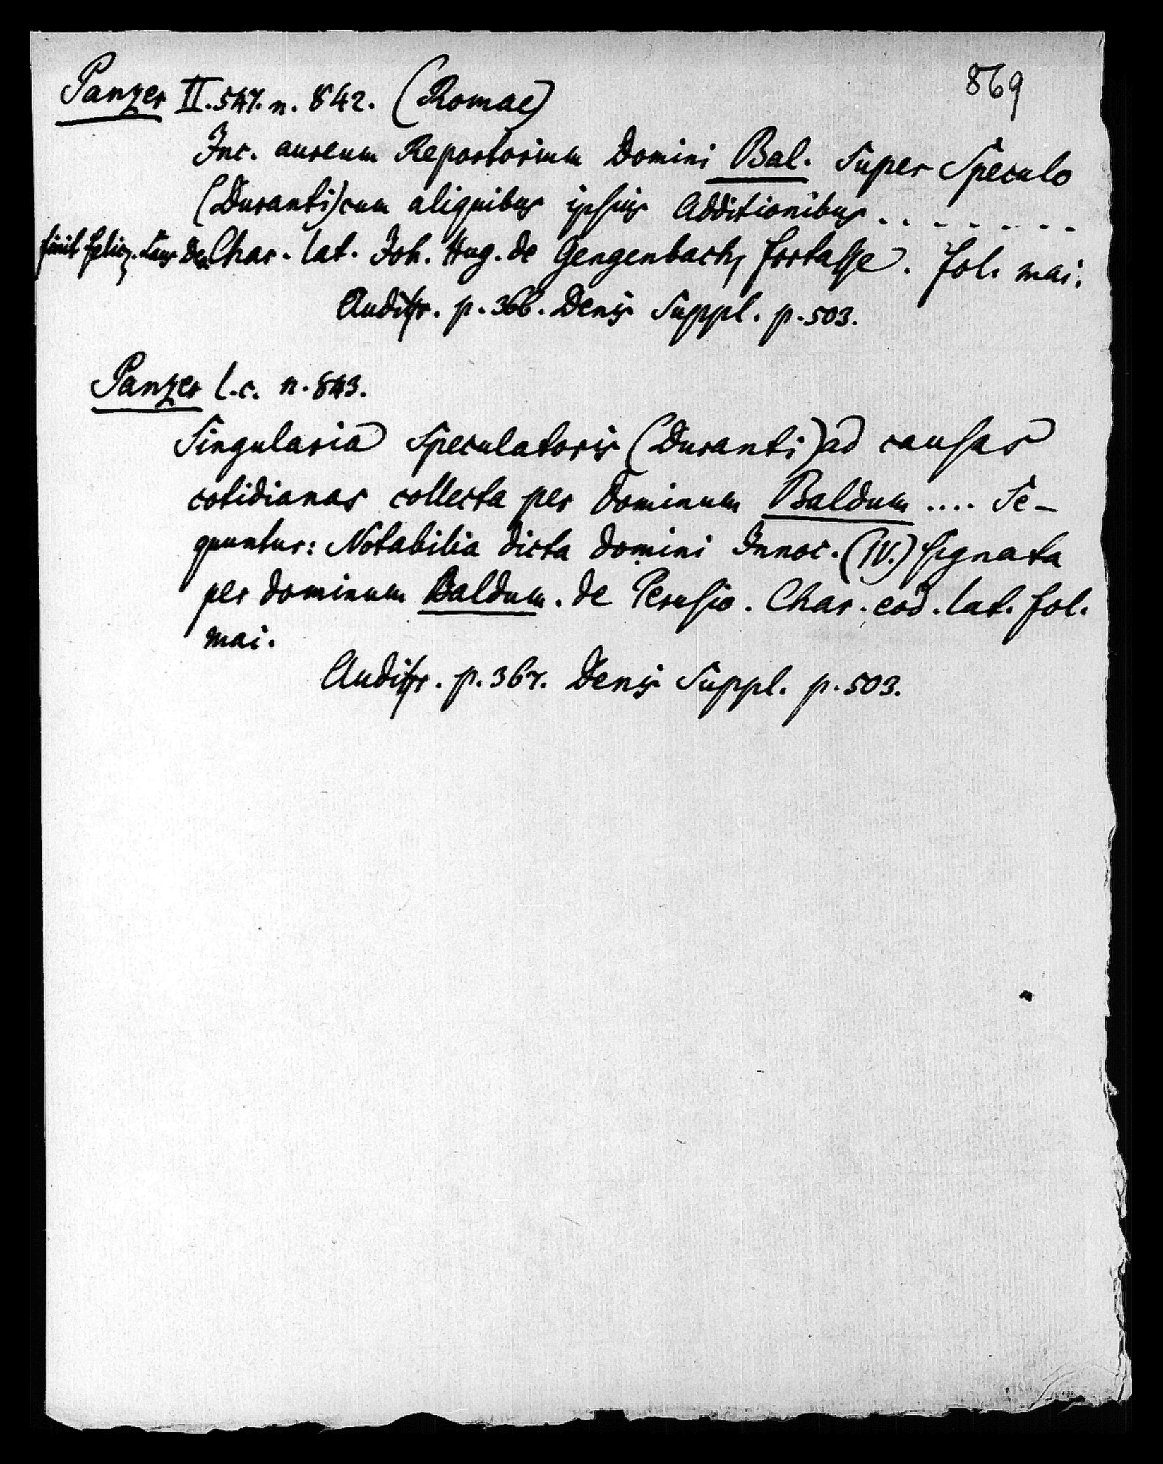 869
Panzer II. 547. n. 842. (Romae)
Inc. aureum Repertorium Domini Bal. super Speculo
(Duranti) cum aliquibus ipsius Additionibus . . . . . . . .
finit feliciz. Laus Deo Char. lat. Joh. Hug. de Gengenbach, fortasse. fol. mai.
Audifr. p. 366. Denis Suppl. p. 503.
Panzer l.c. n. 843.
Singularia Speculatoris (Duranti) ad causas
cotidianas collecta per Dominum Baldum .... Se-
quuntur: Notabilia dicta domini Innoc. (IV.) signata
per dominum Baldum. de Perusio. Char. eod. lat. fol.
mai.
Audifr. p. 367. Denis Suppl. p. 503.